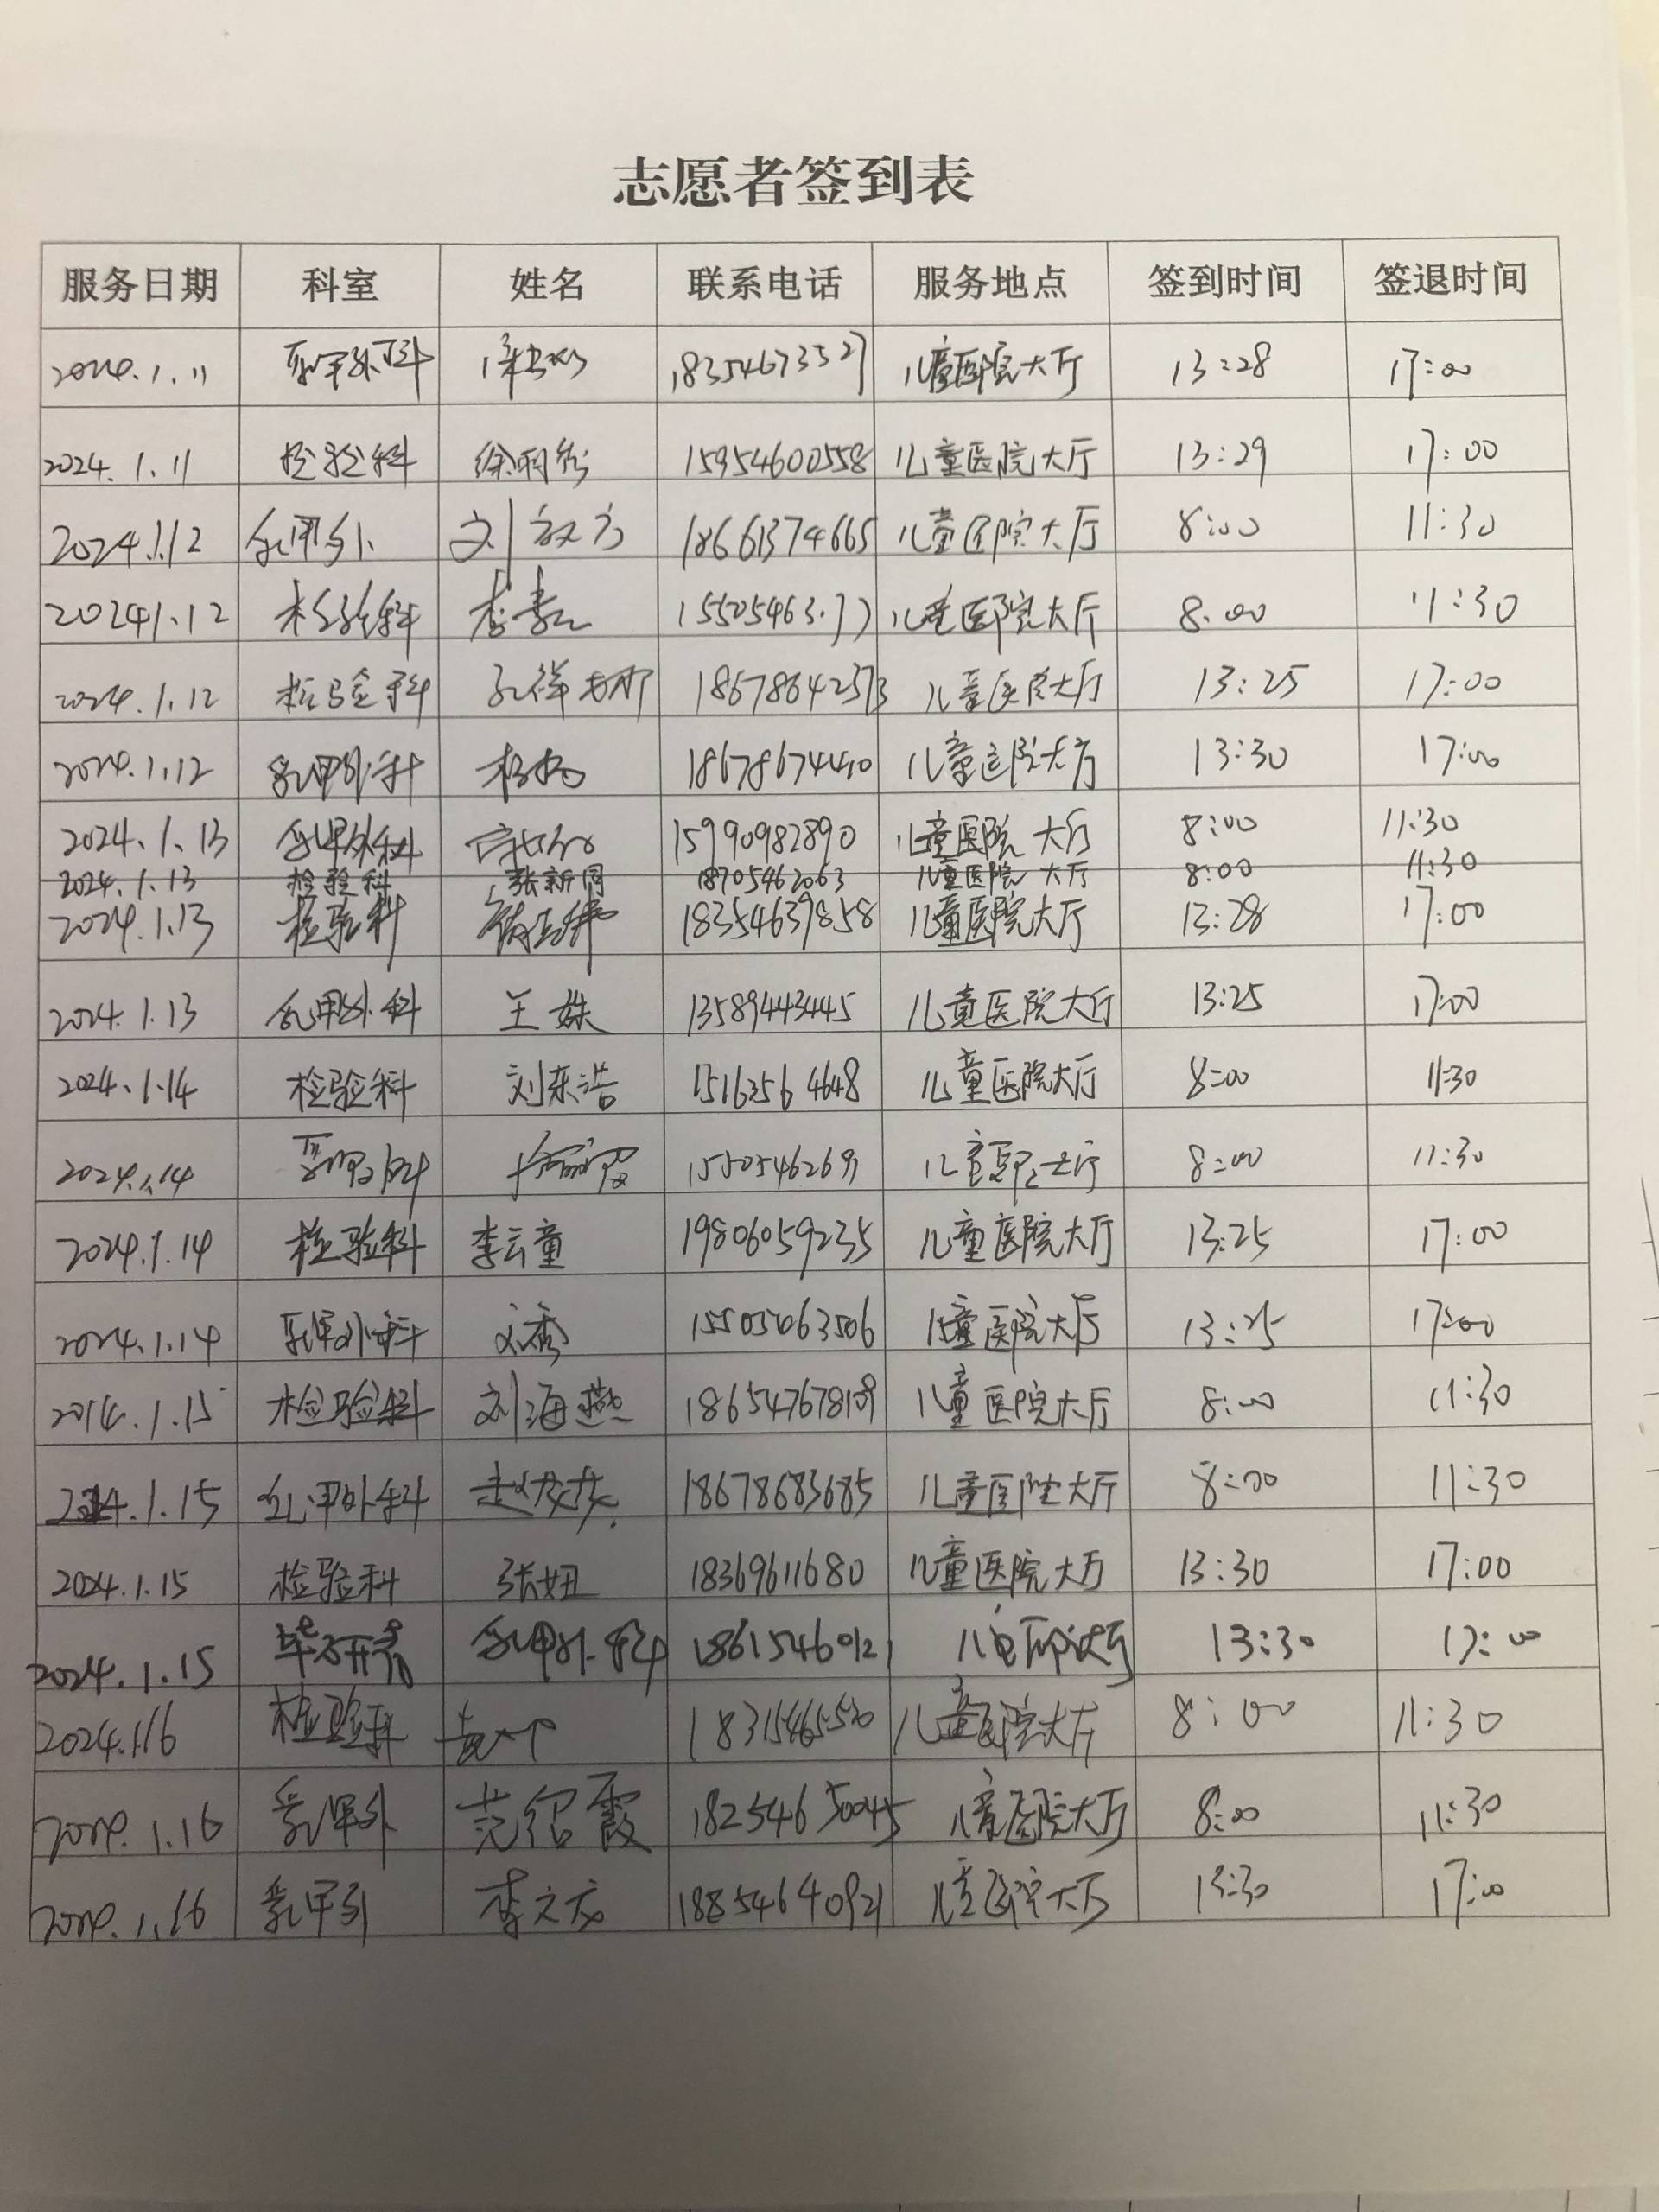 志愿者签到表
服务日期 科室 姓名 联系电话 服务地点 签到时间 签退时间
2024.1.11 乳甲外科 18354673527 儿童医院大厅 13:28 17:00
2024.1.11 检验科 15954600558 儿童医院大厅 13:29 17:00
2024.1.12 乳甲外 18661374665 儿童医院大厅 8:00 11:30
20241.12 检验科 儿童医院大厅 8:00 11:30
2024.1.12 检验科 儿童医院大厅 13:25 17:00
2024.1.12 乳甲外科 18678674410 儿童医院大厅 13:30 17:00
2024.1.13 乳甲外科 15990982890 儿童医院大厅 8:00 11:30
2024.1.13 检验科 张新同 18705462063 儿童医院大厅 8:00 11:30
2024.1.13 检验科 18354639858 儿童医院大厅 13:28 17:00
2024.1.13 乳甲外科 王姝 13589443445 儿童医院大厅 13:25 17:00
2024.1.14 检验科 刘东浩 15163564648 儿童医院大厅 8:00 11:30
2024.1.14 儿童医院大厅 8:00 11:30
2024.1.14 检验科 李云童 19806059235 儿童医院大厅 13:25 17:00
2024.1.14 乳甲外科 15505463506 儿童医院大厅 13:25 17:00
2014.1.15 检验科 刘海燕 儿童医院大厅 8:00 11:30
2024.1.15 乳甲外科 18678683685 儿童医院大厅 8:00 11:30
2024.1.15 检验科 张妞 18369611680 儿童医院大厅 13:30 17:00
2024.1.15 乳甲外科 18615460121 13:30 17:00
2024.1.16 检验科 18315465530 儿童医院大厅 8:00 11:30
2024.1.16 乳甲外 范绍霞 18254650045 儿童医院大厅 8:00 11:30
2024.1.16 乳甲外 18854640921 儿童医院大厅 13:30 17:00